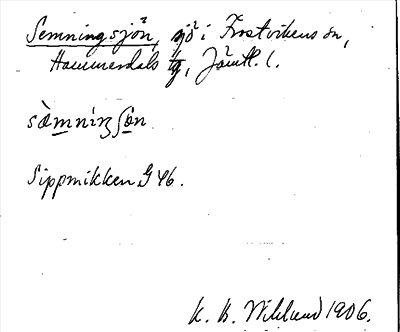 Semningsjön, sjö i Frostvikens sn,
Hammerdals tg, Jämtl. l.
sæ̀mnìŋʃön
Sippmikken G 46.
K. B. Wiklund 1906.